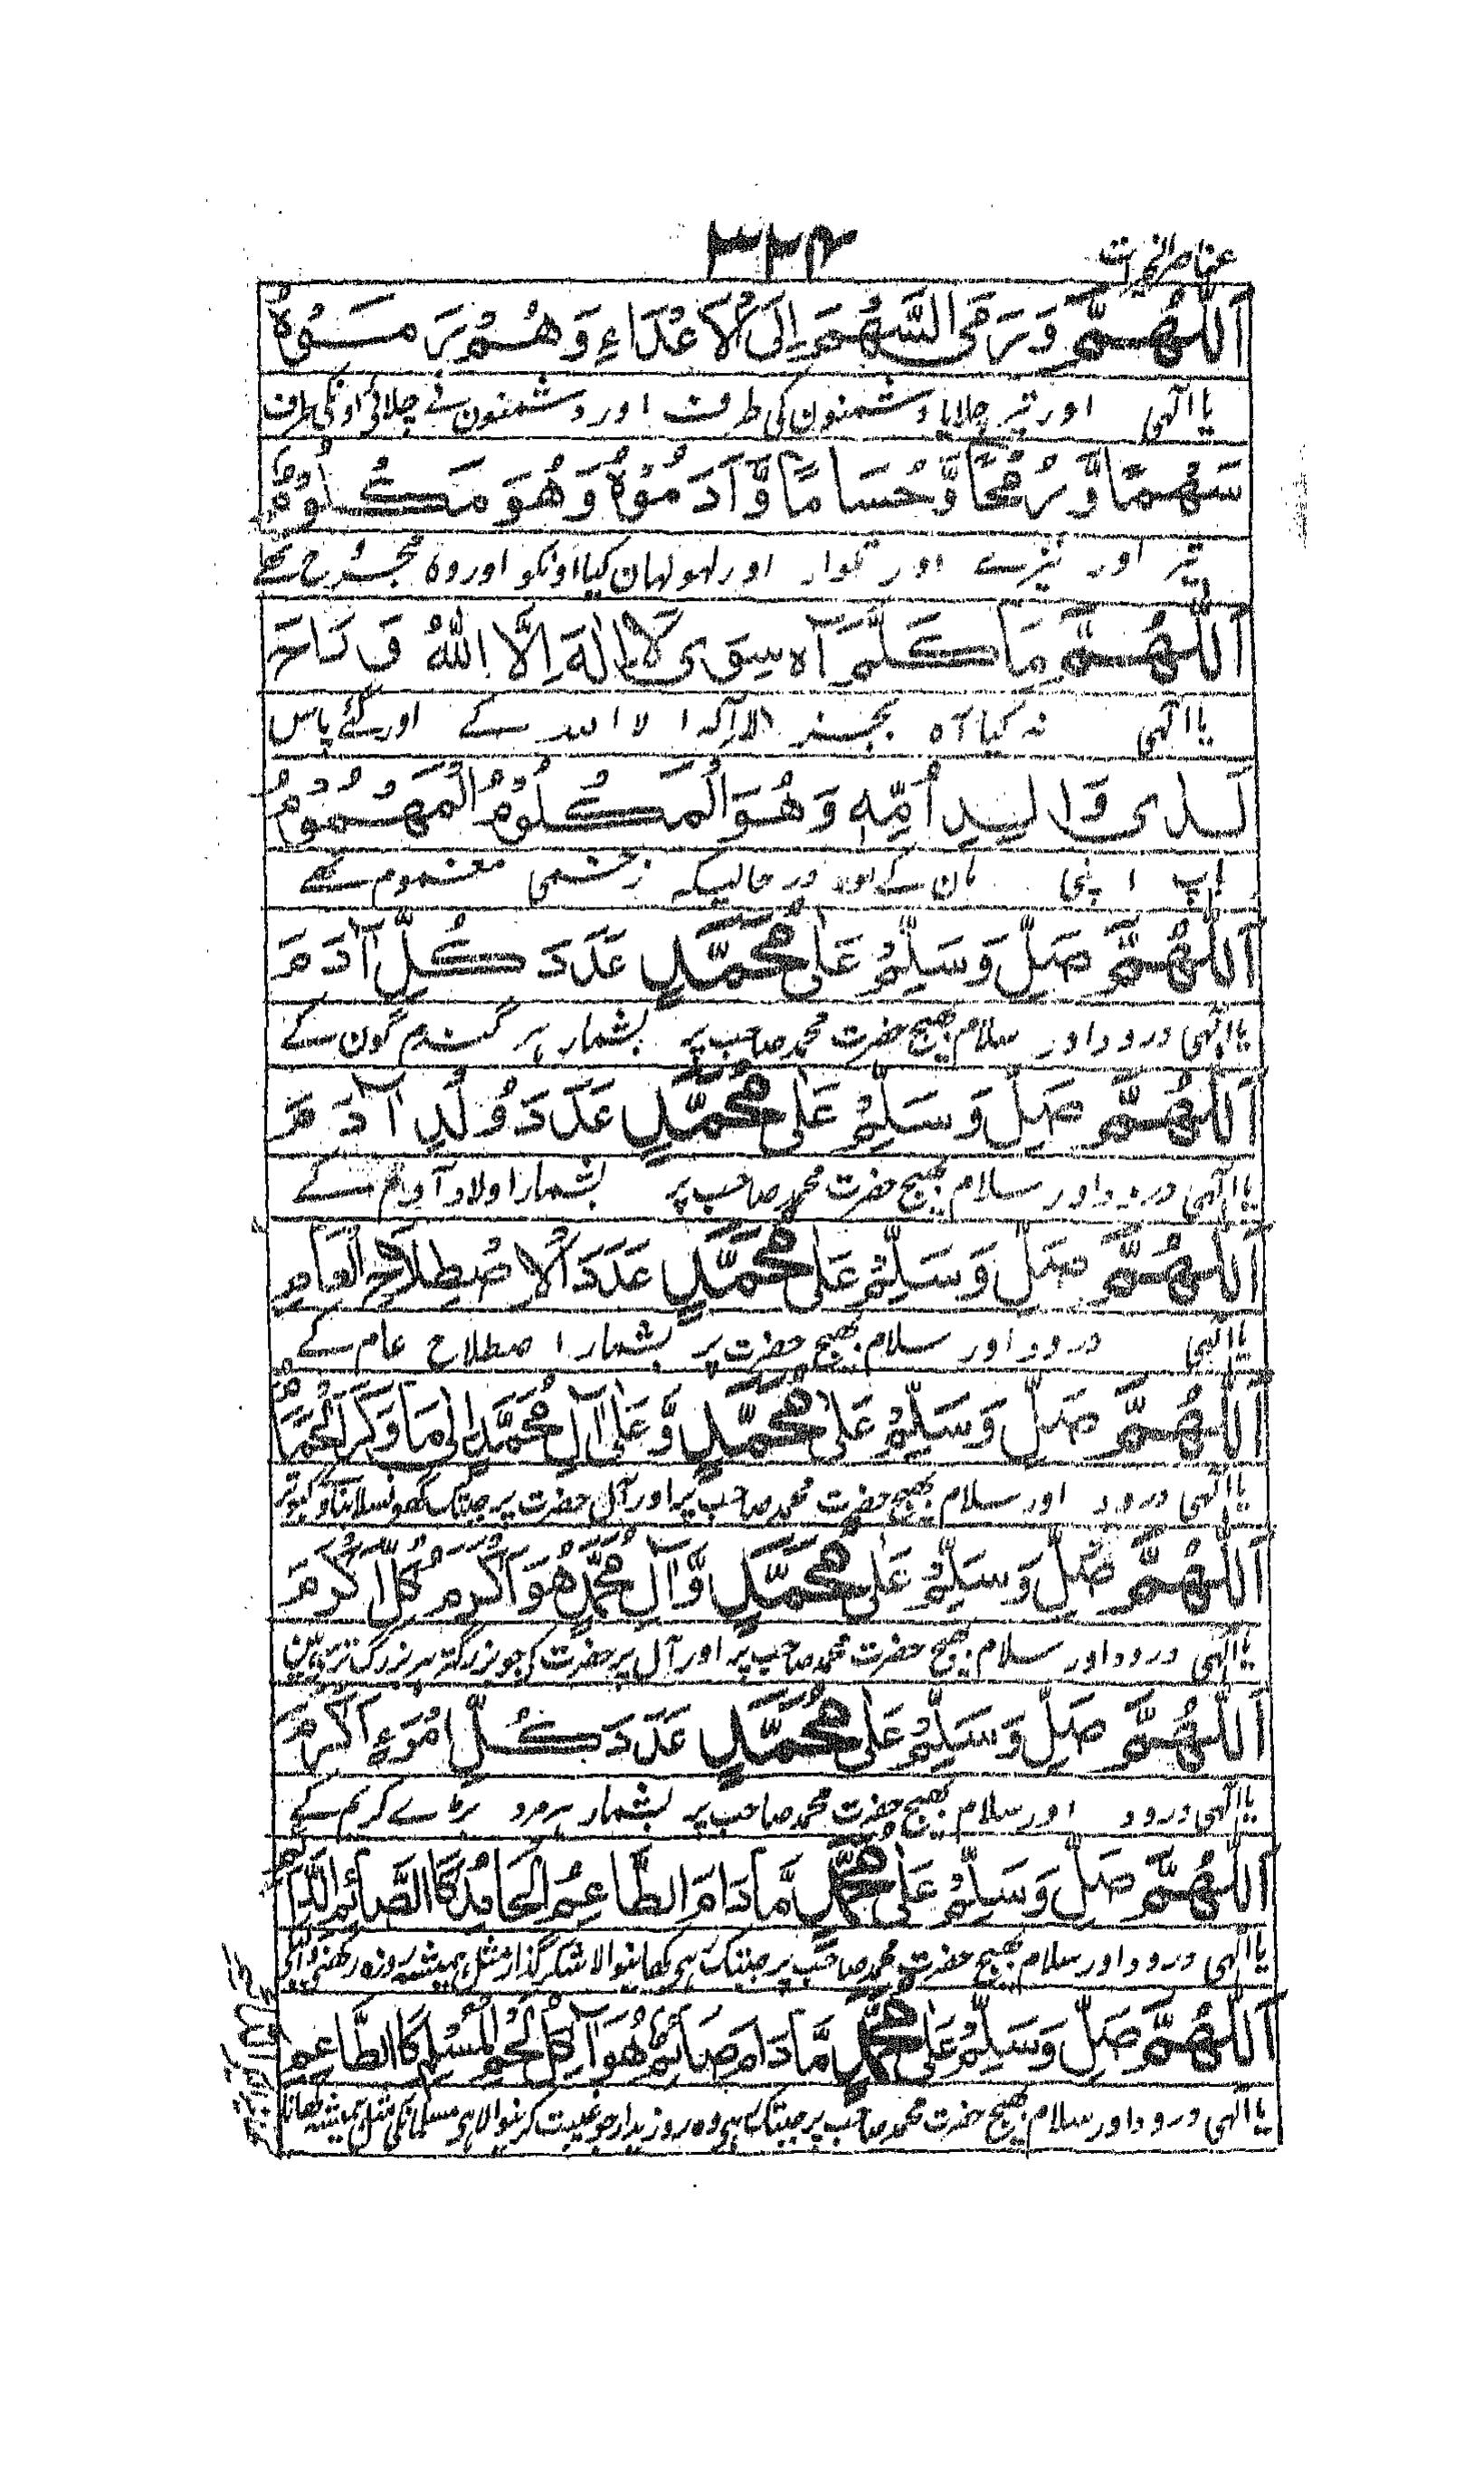 عناصر الخیرات
۳۲۴
اَللّٰهُمَّ وَرَمَى السَّهْمَ اِلَى الْاَعْدَاءِ وَهُمْ رَمَوْهُ
یا الٰہی اور تیر چلایا دشمنون کی طرف اور دشمنون نے چلائی اونکی طرف
سَهْمًا وَّرُمْحًا وَّحُسَامًا وَّاَدَمُوْهُ وَهُوَ مَكْلُوْمٌ
تیر اور نیزے اور تلوار اور لہو لہان کیا اونکو اور وہ مجروح تھے
اَللّٰهُمَّ مَا كَلَّمَ آه سِوٰى لَا اِلٰهَ اِلَّا اللّٰهُ وَرَاحَ
یا الٰہی نہ کیا آہ بجز لا الٰہ الا اللہ کے اور گئے پاس
لَدٰى وَالِدِ اُمِّهٖ وَهُوَ الْمَكْلُوْمُ الْمَهْمُوْمُ
باپ اپنی مان کے اور درحالیکہ زخمی مغموم تھے
اَللّٰهُمَّ صَلِّ وَسَلِّمْ عَلٰى مُحَمَّدٍ عَدَدَ كُلِّ آدَمَ
یا الٰہی درود اور سلام بھیج حضرت محمد صاحب پر بشمار ہر گندم گون کے
اَللّٰهُمَّ صَلِّ وَسَلِّمْ عَلٰى مُحَمَّدٍ عَدَدَ وُلْدِ آدَمَ
یا الٰہی درود اور سلام بھیج حضرت محمد صاحب پر بشمار اولاد آدم کے
اَللّٰهُمَّ صَلِّ وَسَلِّمْ عَلٰى مُحَمَّدٍ عَدَدَ الْاِصْطِلَاحِ الْعَامِ
یا الٰہی درود اور سلام بھیج حضرت پر بشمار اصطلاح عام کے
اَللّٰهُمَّ صَلِّ وَسَلِّمْ عَلٰى مُحَمَّدٍ وَّعَلٰى آلِ مُحَمَّدٍ اِلٰى مَا وَكَرَ الْحَمَامُ
یا الٰہی درود اور سلام بھیج حضرت محمد صاحب پر اور آل حضرت پر جبتک گھونسلا بناوے کبوتر
اَللّٰهُمَّ صَلِّ وَسَلِّمْ عَلٰى مُحَمَّدٍ وَّآلِ مُحَمَّدٍ هُوَ اَكْرَمُ كُلِّ اَكْرَمَ
یا الٰہی درود اور سلام بھیج حضرت محمد صاحب پر اور آل پر حضرت کی جو بزرگتر ہر بزرگ تر ہین
اَللّٰهُمَّ صَلِّ وَسَلِّمْ عَلٰى مُحَمَّدٍ عَدَدَ كُلِّ امْرَءٍ اَكْرَمَ
یا الٰہی درود اور سلام بھیج حضرت محمد صاحب پر بشمار ہر مرد بڑے کریم کے
اَللّٰهُمَّ صَلِّ وَسَلِّمْ عَلٰى مُحَمَّدٍ مَّا دَامَ الطَّاعِمُ الْحَامِدُ كَالصَّائِمِ الدَّائِمِ
یا الٰہی درود اور سلام بھیج حضرت محمد صاحب پر جبتک ہی کھانیوالا شکر گذار مثل ہمیشہ روزہ رکھنے والی
اَللّٰهُمَّ صَلِّ وَسَلِّمْ عَلٰى مُحَمَّدٍ مَّا دَامَ صَائِمٌ هُوَ آكِلُ لَحْمِ الْمُسْلِمِ كَالطَّاعِمِ
یا الٰہی درود اور سلام بھیج حضرت محمد صاحب پر جبتک ہی وہ روزیدار جو غیبت کرنیوالا ہو مسلمانکی مثل ہمیشہ کھانا